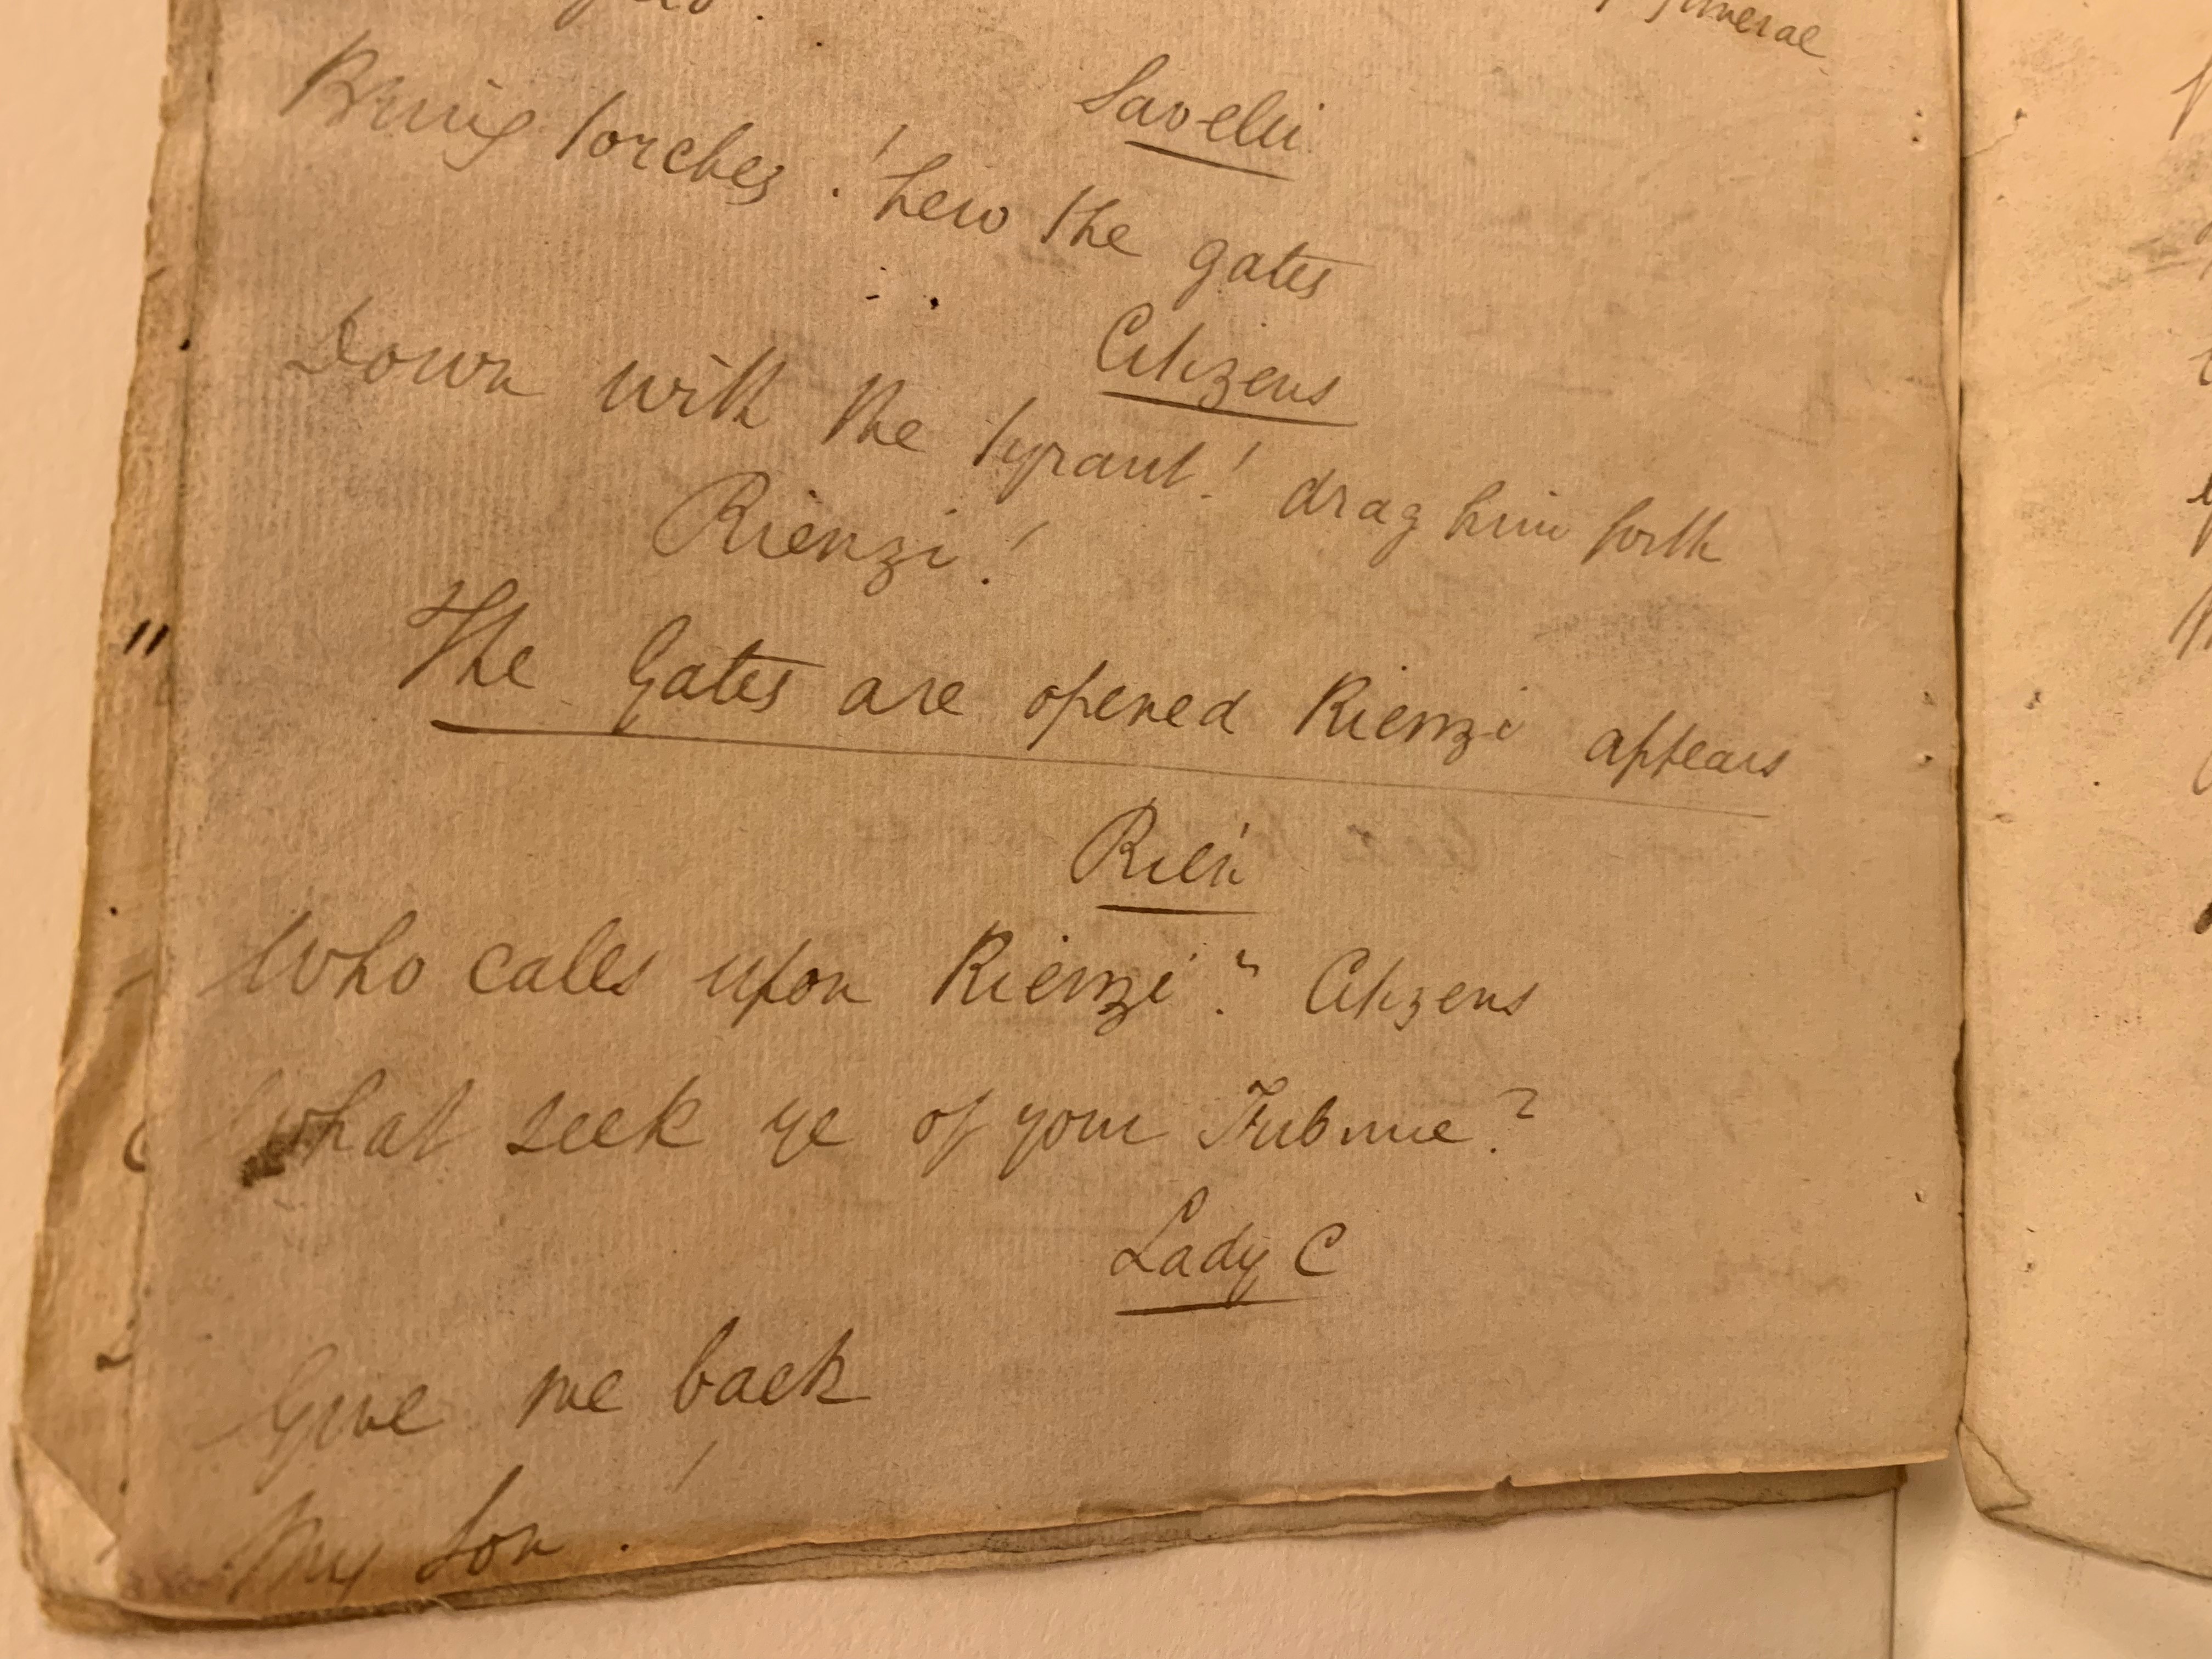 funeral
Savelli
Bring torches! hew the gates
Citizens
Down with the tyrant! drag him forth
Rienzi!
The Gates are opened Rienzi appears
Rien
Who calls upon Rienzi? Citizens
What seek ye of your Tribune?
Lady C
Give me back
My Son!